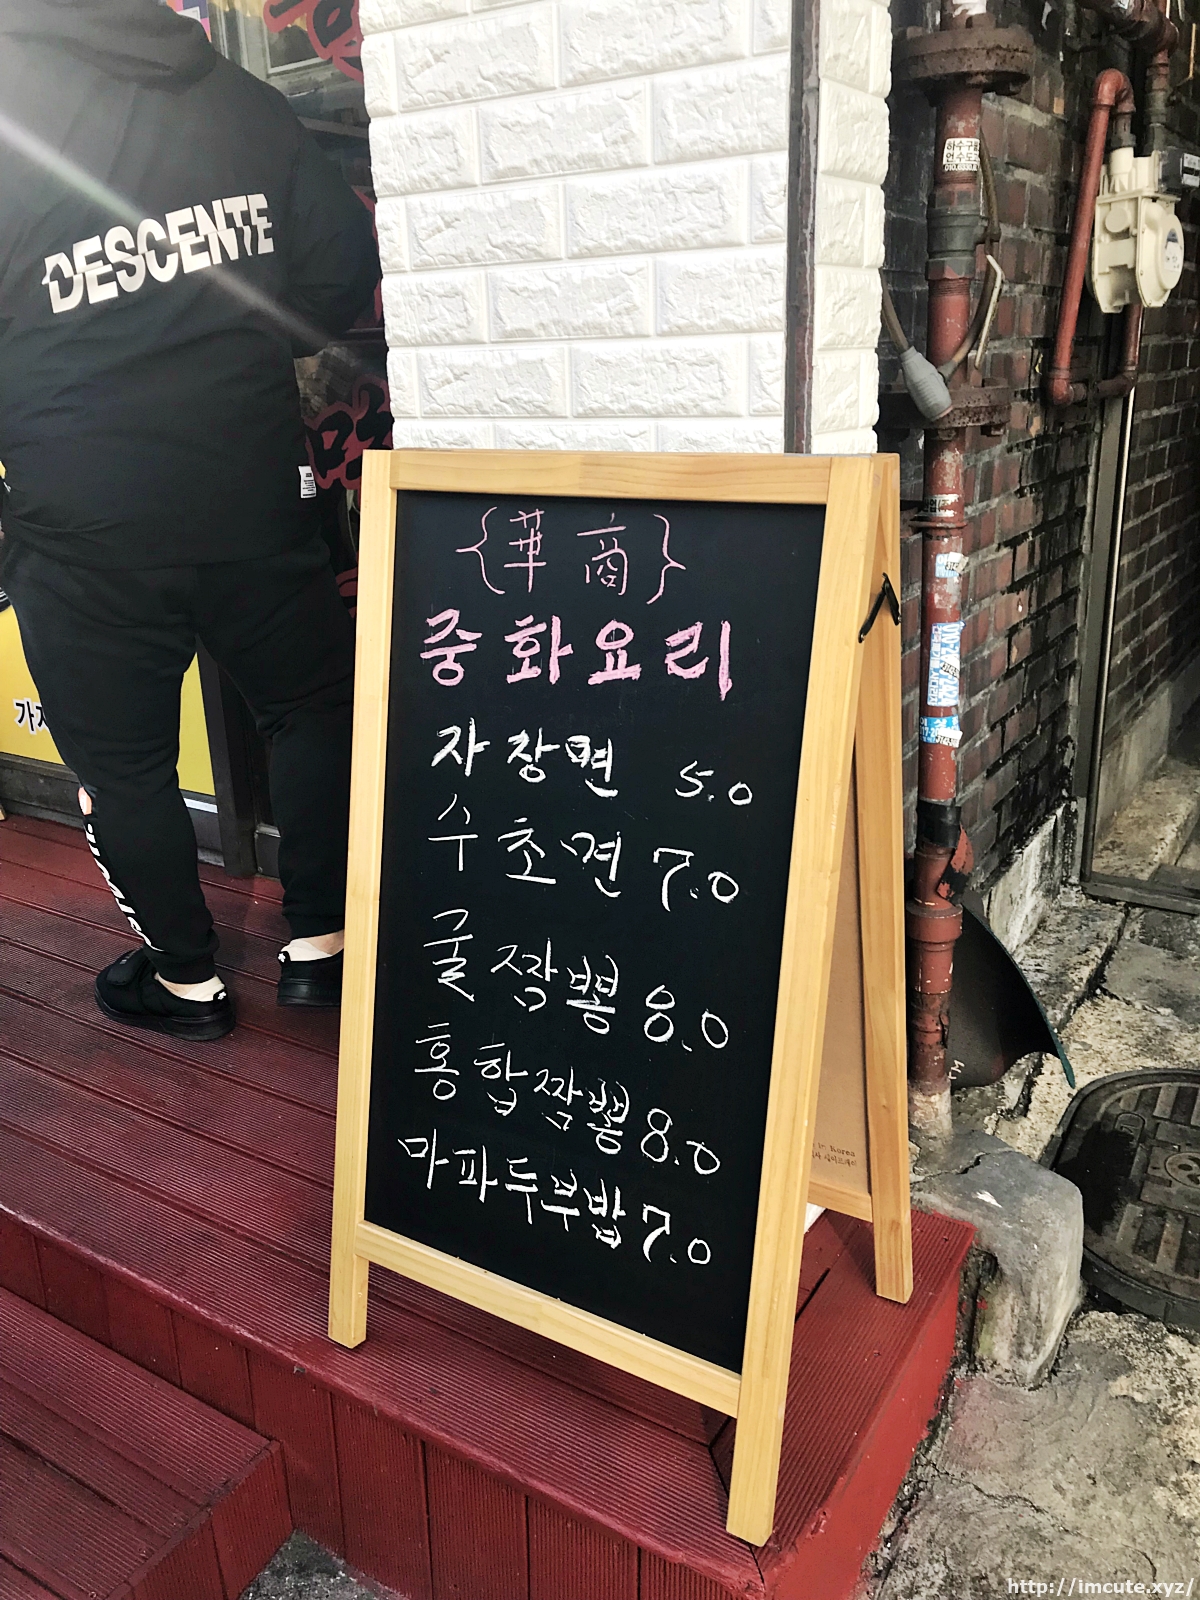 DESCENTE
{華商}
중화요리
자장면 5.0
수초면 7.0
굴짬뽕 8.0
홍합짬뽕 8.0
마파두부밥 7.0
하수구
http://imcute.xyz/